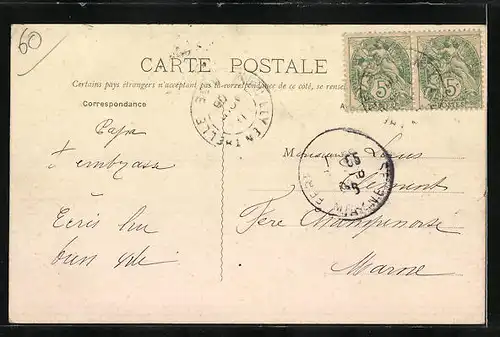 60
CARTE POSTALE
Certains pays étrangers n'acceptent pas la correspondance de ce côté, se rense
Correspondance
Papa
t'embrasse
Ecris lui
bien vite
Monsieur Louis
Clément
Fère Champenoise
Marne
5
5
LLY EN THELLE